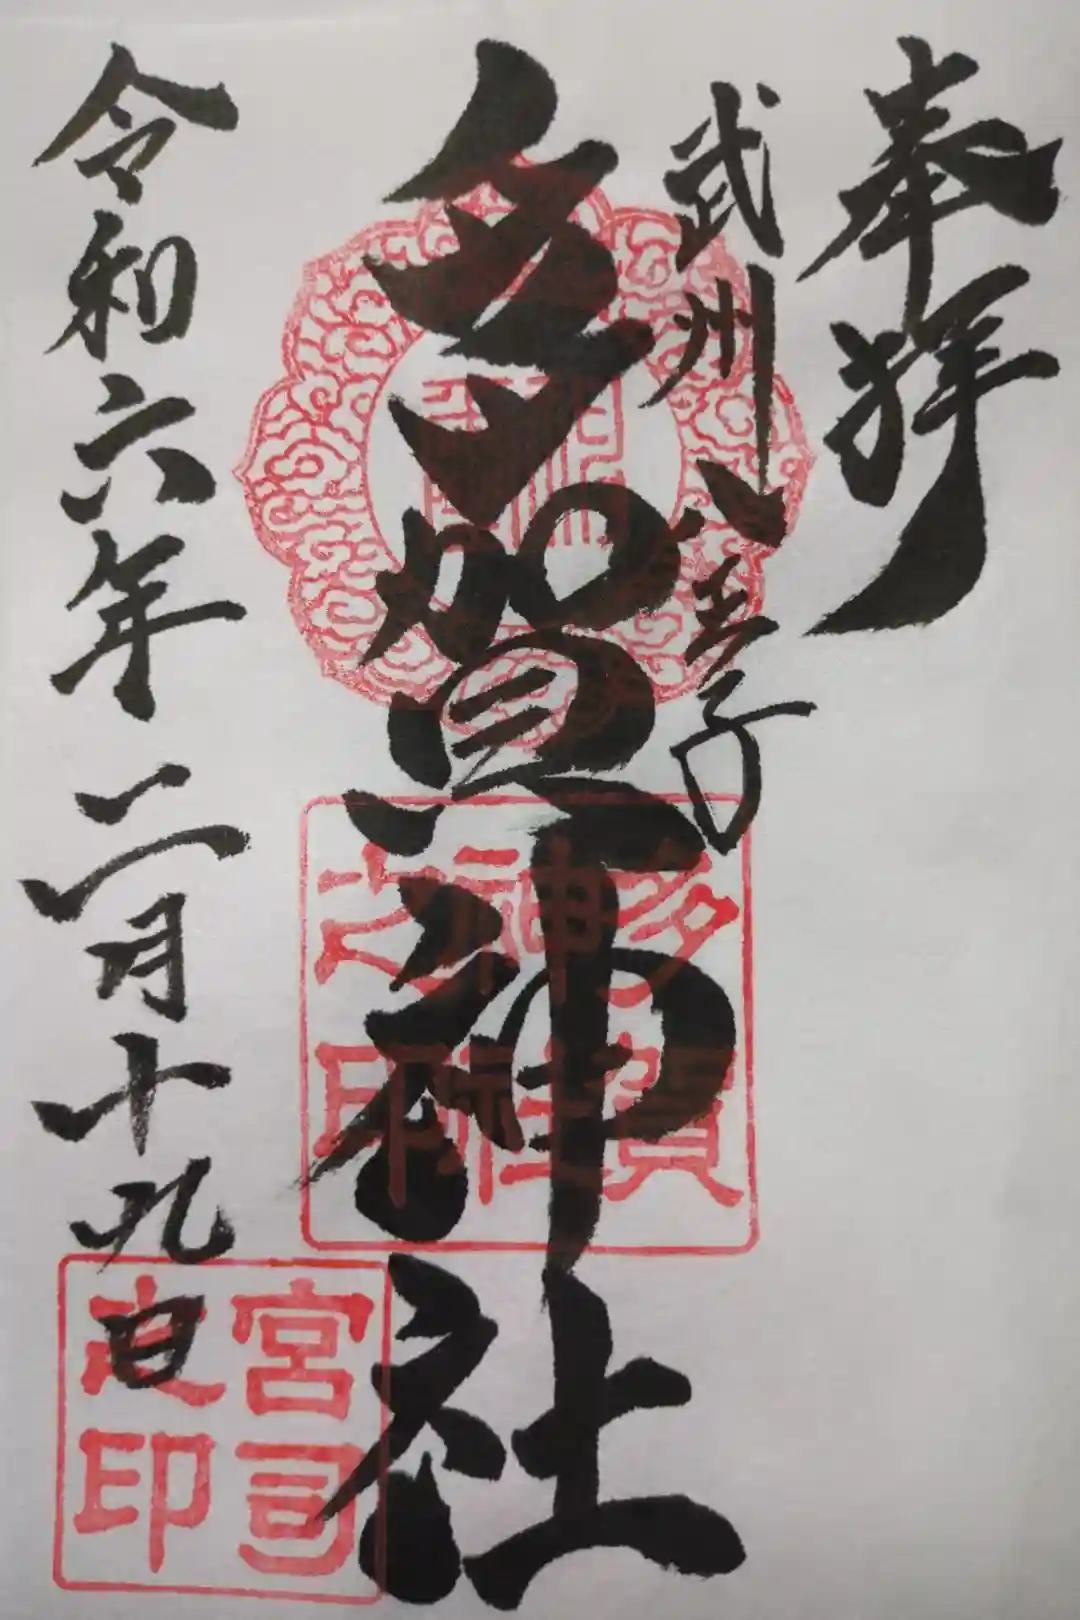 奉拝
武州八王子
多賀神社
令和六年二月十九日
多賀神社之印
宮司之印